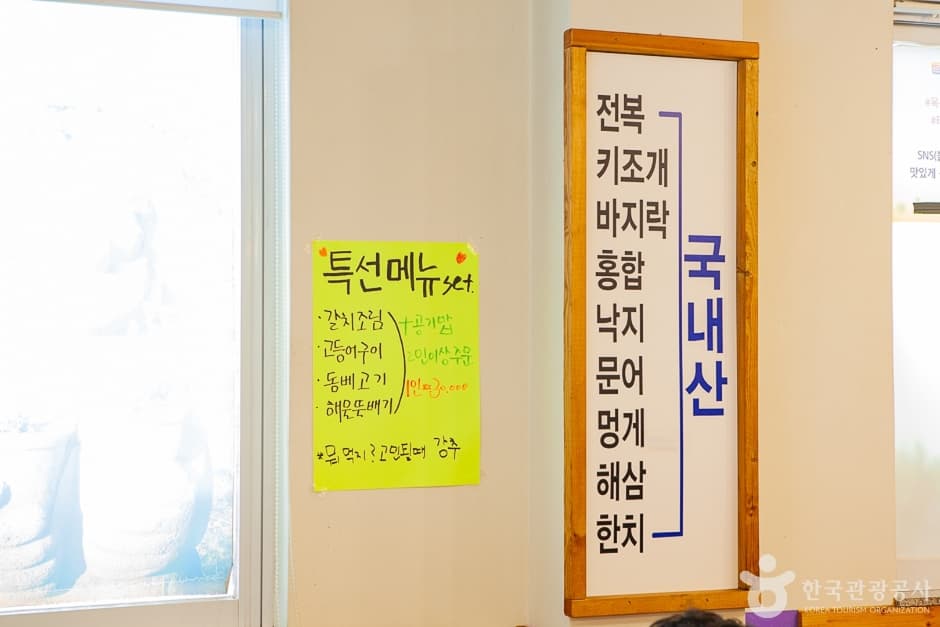 특선메뉴 set.
·갈치조림
·고등어구이
·돔베고기
·해물뚝배기
+공기밥
2인이상주문
1인분 30,000
*뭐 먹지? 고민될때 강추
전복
키조개
바지락
홍합
낙지
문어
멍게
해삼
한치
국내산
맛있게
한국관광공사
KOREA TOURISM ORGANIZATION